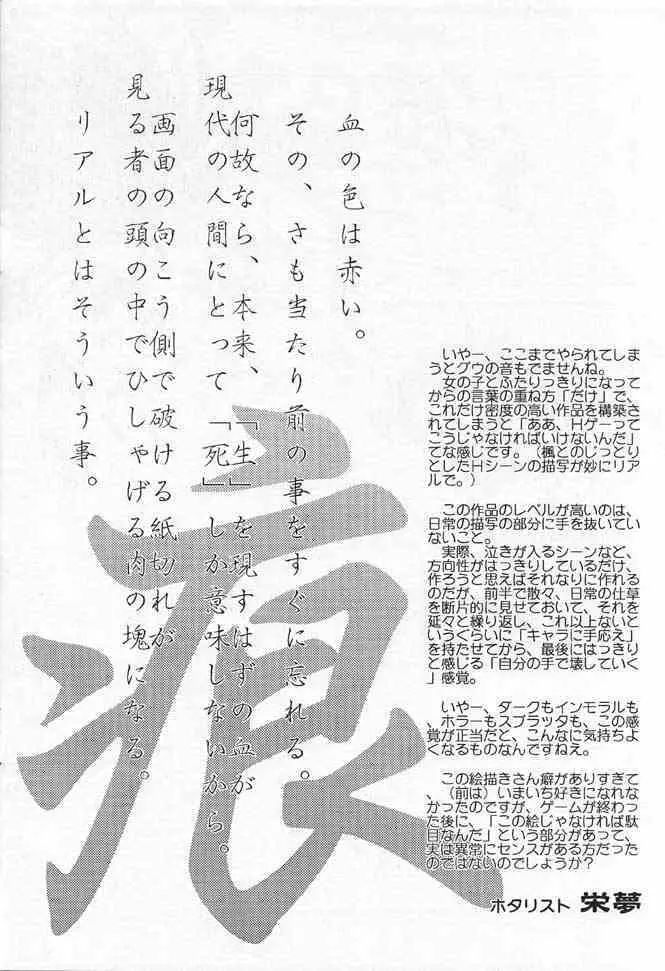 血の色は赤い。
その、さも当たり前の事をすぐに忘れる。
何故なら、本来、「生」を現すはずの血が
現代の人間にとって「死」しか意味しないから。
画面の向こう側で破ける紙切れが
見る者の頭の中でひしゃげる肉の塊になる。
リアルとはそういう事。
痕
いやー、ここまでやられてしま
うとグウの音もでませんね。
女の子とふたりっきりになって
からの言葉の重ね方「だけ」で、
これだけ密度の高い作品を構築さ
れてしまうと「ああ、Ｈゲーって
こうじゃなければいけないんだ」
てな感じです。（楓とのじっとり
としたＨシーンの描写が妙にリア
ルで。）
この作品のレベルが高いのは、
日常の描写の部分に手を抜いてい
ないこと。
実際、泣きが入るシーンなど、
方向性がはっきりしているだけ、
作ろうと思えばそれなりに作れる
のだが、前半で散々、日常の仕草
を断片的に見せておいて、それを
延々と繰り返し、これ以上ないと
いうぐらいに「キャラに手応え」
を持たせてから、最後にはっきり
と感じる「自分の手で壊していく
」感覚。
いやー、ダークもインモラルも
、ホラーもスプラッタも、この感
覚が正当だと、こんなに気持ちよ
くなるものなんですねえ。
この絵描きさん癖がありすぎて
、（前は）いまいち好きになれな
かったのですが、ゲームが終わっ
た後に、「この絵じゃなければ駄
目なんだ」という部分があって、
実は異常にセンスがある方だった
のではないのでしょうか？
ホタリスト 栄夢